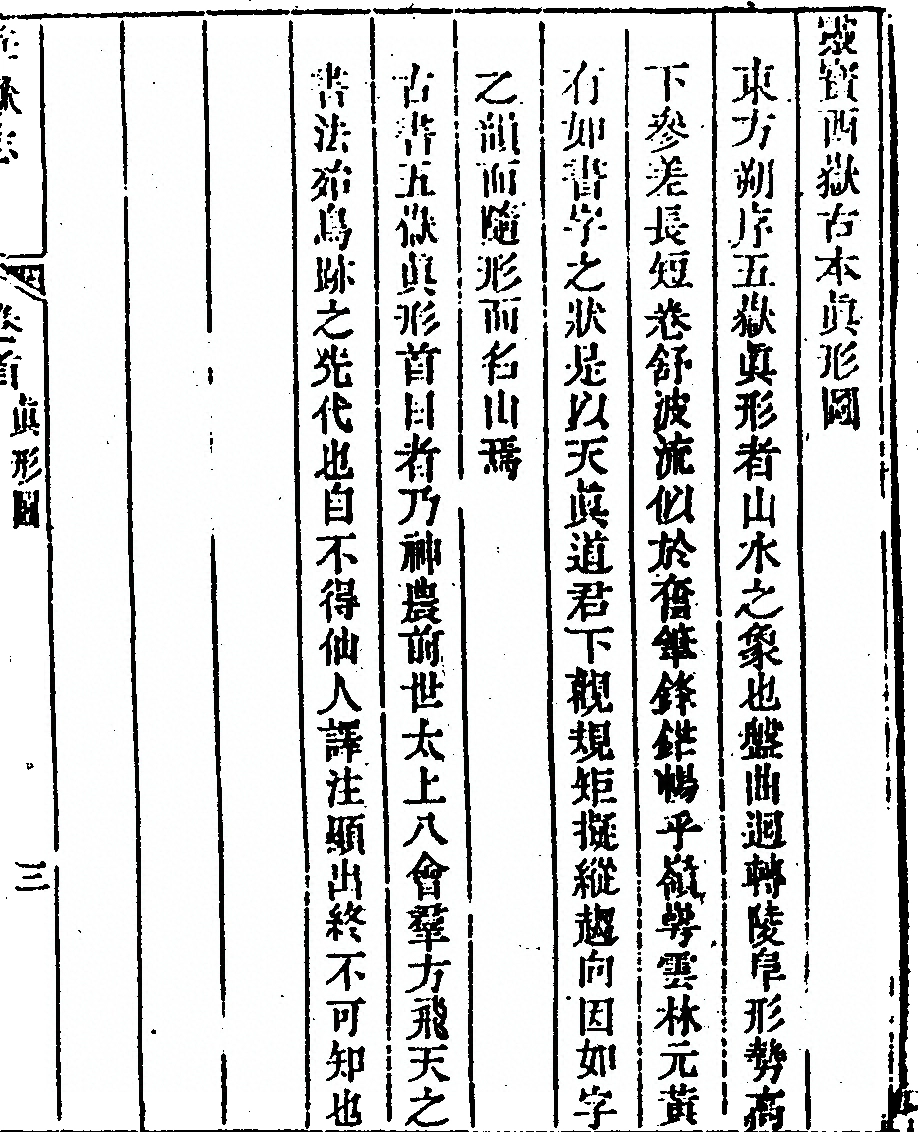 靈寶西嶽古本眞形圖
東方朔序五嶽眞形者山水之象也盤曲迴轉陵阜形勢高
下參差長短卷舒波流似於奮筆鋒鋩暢乎嶺崿雲林元黃
有如書字之狀是以天眞道君下觀規矩擬縱趨向因如字
之韻而隨形而名山焉
古書五嶽眞形首目者乃神農前世太上八會羣方飛天之
書法殆鳥跡之先代也自不得仙人譯注顯出終不可知也
嶽志
卷首
眞形圖
三